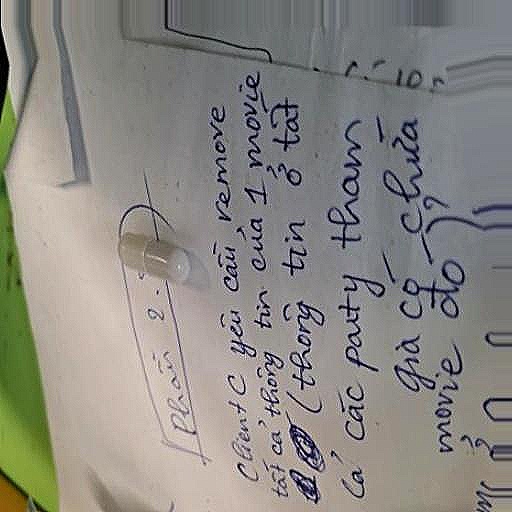 Phần 2.
Client C yêu cầu remove
tất cả thông tin của 1 movie
(thông tin ở tất
cả các party tham
gia có chứa
movie đó)